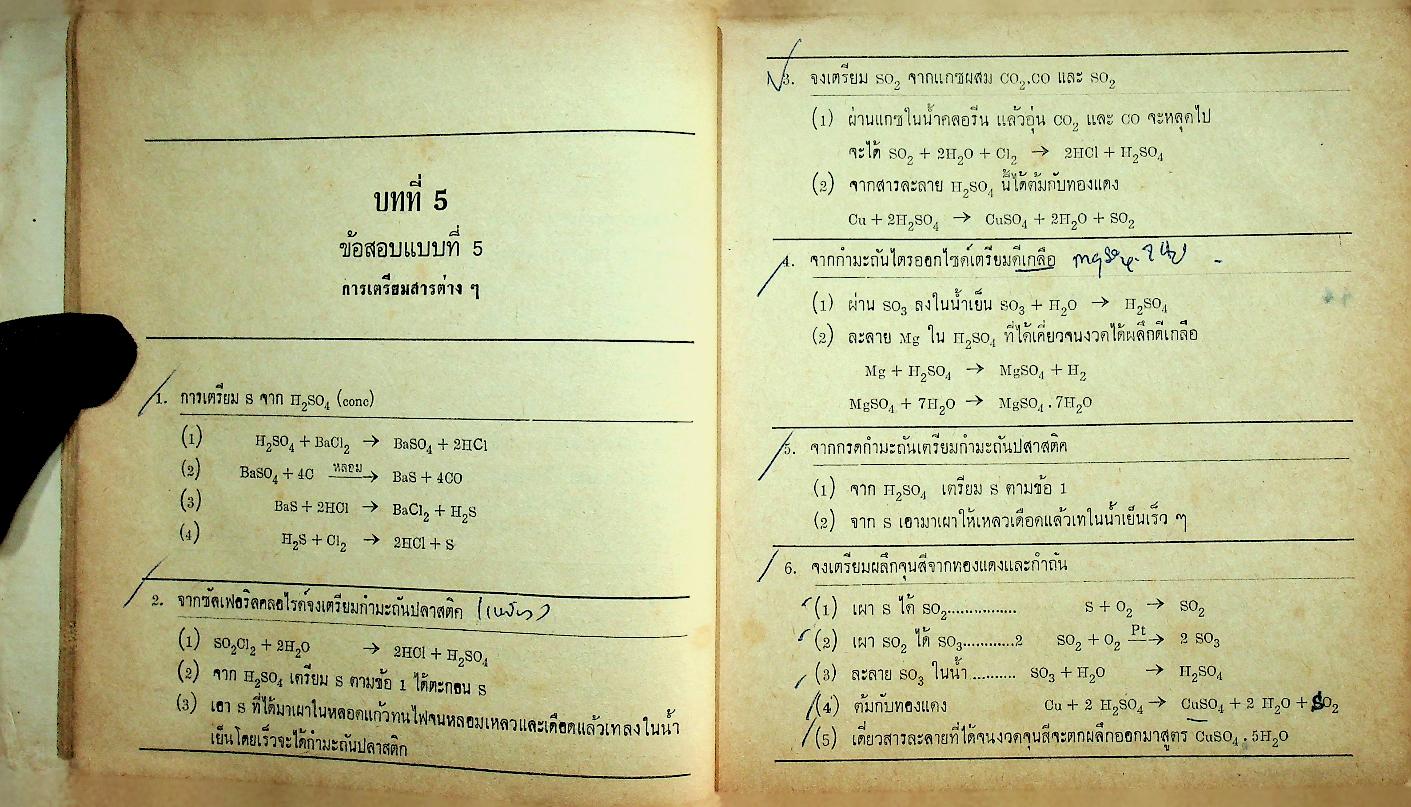 บทที่ 5
ข้อสอบแบบที่ 5
การเตรียมสารต่าง ๆ
1. การเตรียม S จาก H₂SO₄ (conc)
(1) H₂SO₄ + BaCl₂ → BaSO₄ + 2HCl
(2) BaSO₄ + 4C หลอม→ BaS + 4CO
(3) BaS + 2HCl → BaCl₂ + H₂S
(4) H₂S + Cl₂ → 2HCl + S
2. จากซัลเฟอริลคลอไรด์จงเตรียมกำมะถันปลาสติค
(1) SO₂Cl₂ + 2H₂O → 2HCl + H₂SO₄
(2) จาก H₂SO₄ เตรียม S ตามข้อ 1 ได้ตะกอน S
(3) เอา S ที่ได้มาเผาในหลอดแก้วทนไฟจนหลอมเหลวและเดือดแล้วเทลงในน้ำ
เย็นโดยเร็วจะได้กำมะถันปลาสติค
3. จงเตรียม SO₂ จากแกซผสม CO₂.CO และ SO₂
(1) ผ่านแกซในน้ำคลอรีน แล้วอุ่น CO₂ และ CO จะหลุดไป
จะได้ SO₂ + 2H₂O + Cl₂ → 2HCl + H₂SO₄
(2) จากสารละลาย H₂SO₄ นี้ได้ต้มกับทองแดง
Cu + 2H₂SO₄ → CuSO₄ + 2H₂O + SO₂
4. จากกำมะถันไตรออกไซด์เตรียมดีเกลือ MgSO₄.7H₂O
(1) ผ่าน SO₃ ลงในน้ำเย็น SO₃ + H₂O → H₂SO₄
(2) ละลาย Mg ใน H₂SO₄ ที่ได้เคี่ยวจนงวดได้ผลึกดีเกลือ
Mg + H₂SO₄ → MgSO₄ + H₂
MgSO₄ + 7H₂O → MgSO₄.7H₂O
5. จากกรดกำมะถันเตรียมกำมะถันปสาสติค
(1) จาก H₂SO₄ เตรียม S ตามข้อ 1
(2) จาก S เอามาเผาให้เหลวเดือดแล้วเทในน้ำเย็นเร็ว ๆ
6. จงเตรียมผลึกจุนสีจากทองแดงและกำถัน
(1) เผา S ได้ SO₂................ S + O₂ → SO₂
(2) เผา SO₂ ได้ SO₃............2 SO₂ + O₂ Pt→ 2 SO₃
(3) ละลาย SO₃ ในน้ำ.......... SO₃ + H₂O → H₂SO₄
(4) ต้มกับทองแดง Cu + 2 H₂SO₄ → CuSO₄ + 2 H₂O + SO₂
(5) เคี่ยวสารละลายที่ได้จนงวดจุนสีจะตกผลึกออกมาสูตร CuSO₄.5H₂O